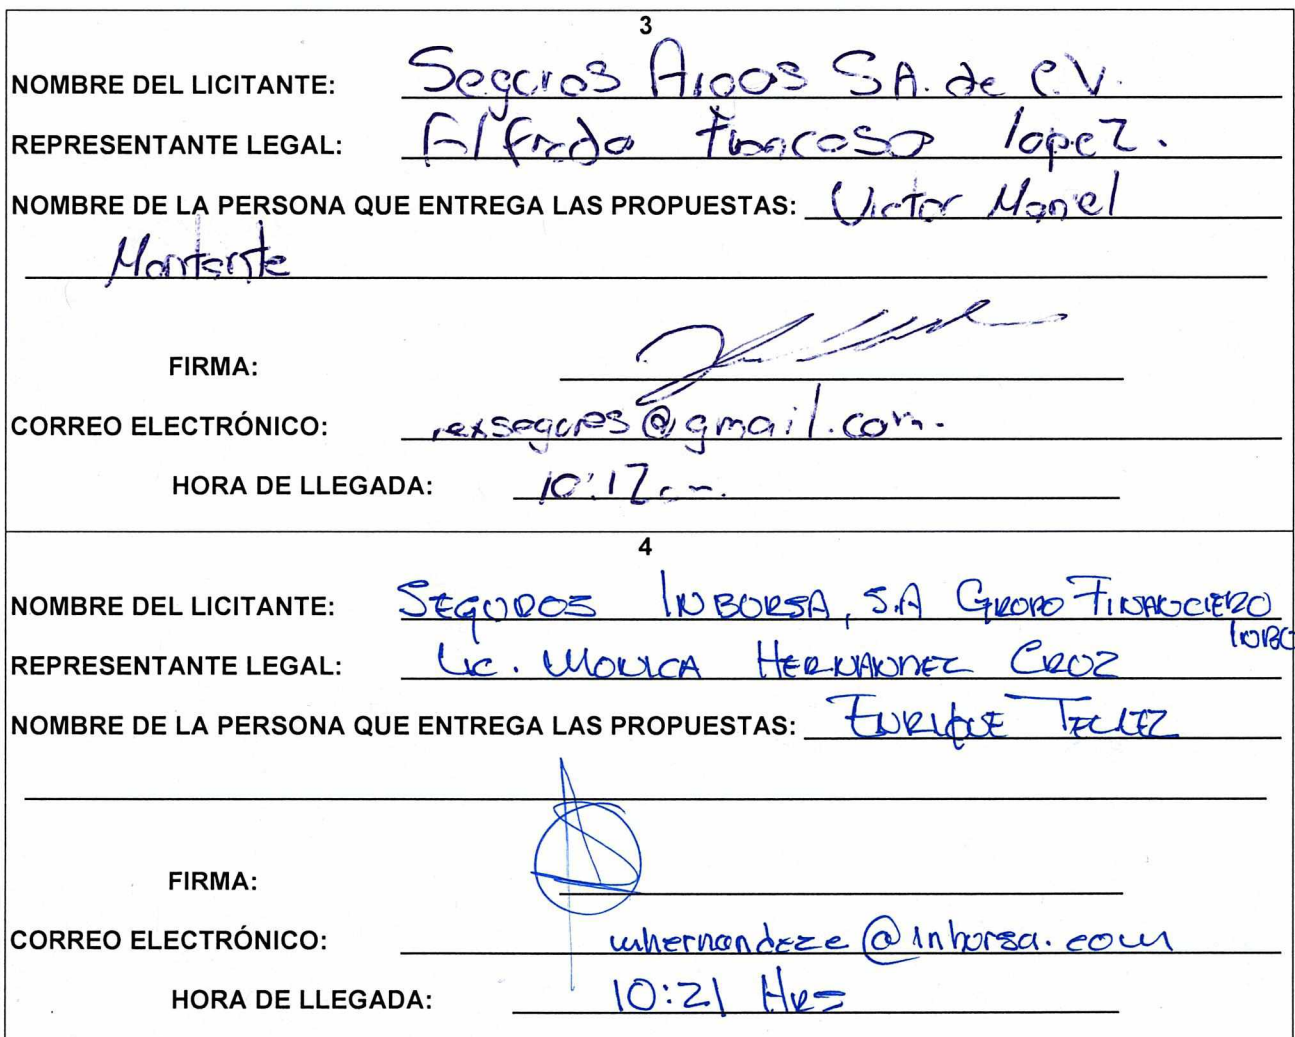 3
NOMBRE DEL LICITANTE: Seguros Argos S.A. de C.V.
REPRESENTANTE LEGAL: Alfredo lopez.
NOMBRE DE LA PERSONA QUE ENTREGA LAS PROPUESTAS: Victor Manel
Montante
FIRMA:
CORREO ELECTRÓNICO: rexseguros@gmail.com.
HORA DE LLEGADA: 10:17
4
NOMBRE DEL LICITANTE: SEGUROS INBURSA, S.A GRUPO FINANCIERO
INBU
REPRESENTANTE LEGAL: LIC. MONICA HERNANDEZ CRUZ
NOMBRE DE LA PERSONA QUE ENTREGA LAS PROPUESTAS: ENRIQUE TELLEZ
FIRMA:
CORREO ELECTRÓNICO: mhernandezc@inbursa.com
HORA DE LLEGADA: 10:21 HRS